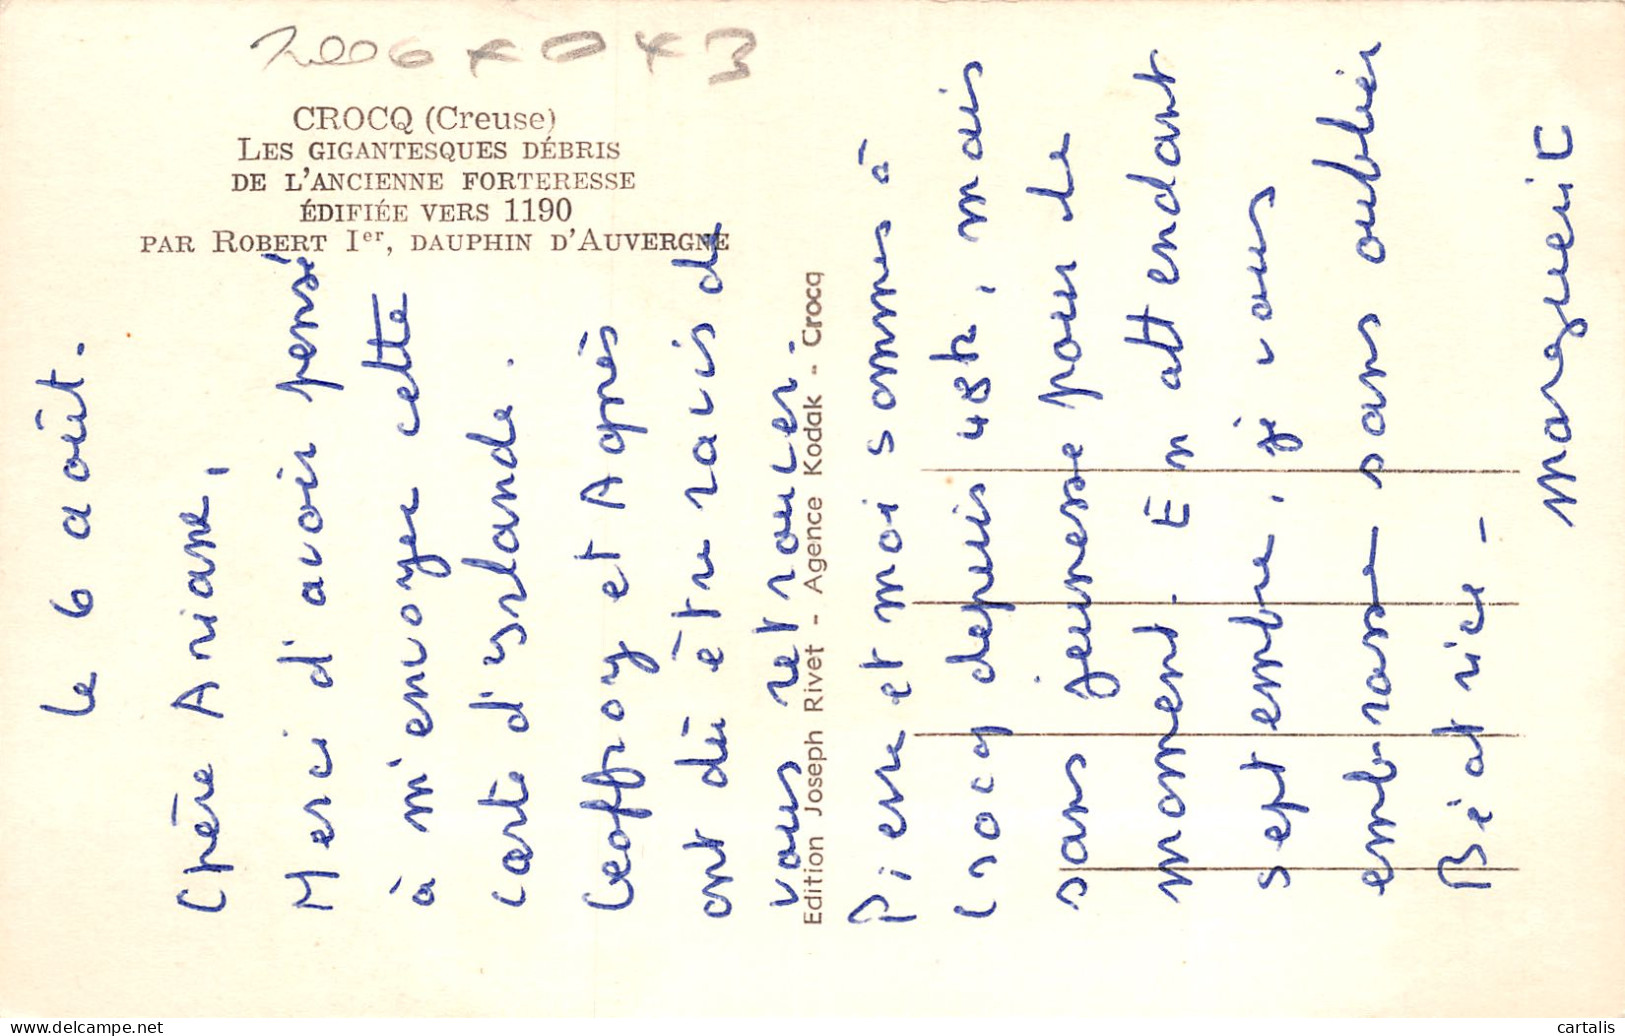 2006 x 0 x 3
CROCQ (Creuse)
LES GIGANTESQUES DÉBRIS
DE L'ANCIENNE FORTERESSE
ÉDIFIÉE VERS 1190
PAR ROBERT Ier, DAUPHIN D'AUVERGNE
Le 6 août.
Chère Ariane,
Merci d'avoir pensé
à m'envoyer cette
carte d'yslande.
Geoffroy et Agnès
ont dû être ravis de
vous retrouver.
Edition Joseph Rivet - Agence Kodak - Crocq
Pierre et moi sommes à
Crocq depuis 48h, mais
sans jeunesse pour le
moment. En attendant
septembre, je vous
embrasse sans oublier
Béatrice -
Marguerite
cartalis